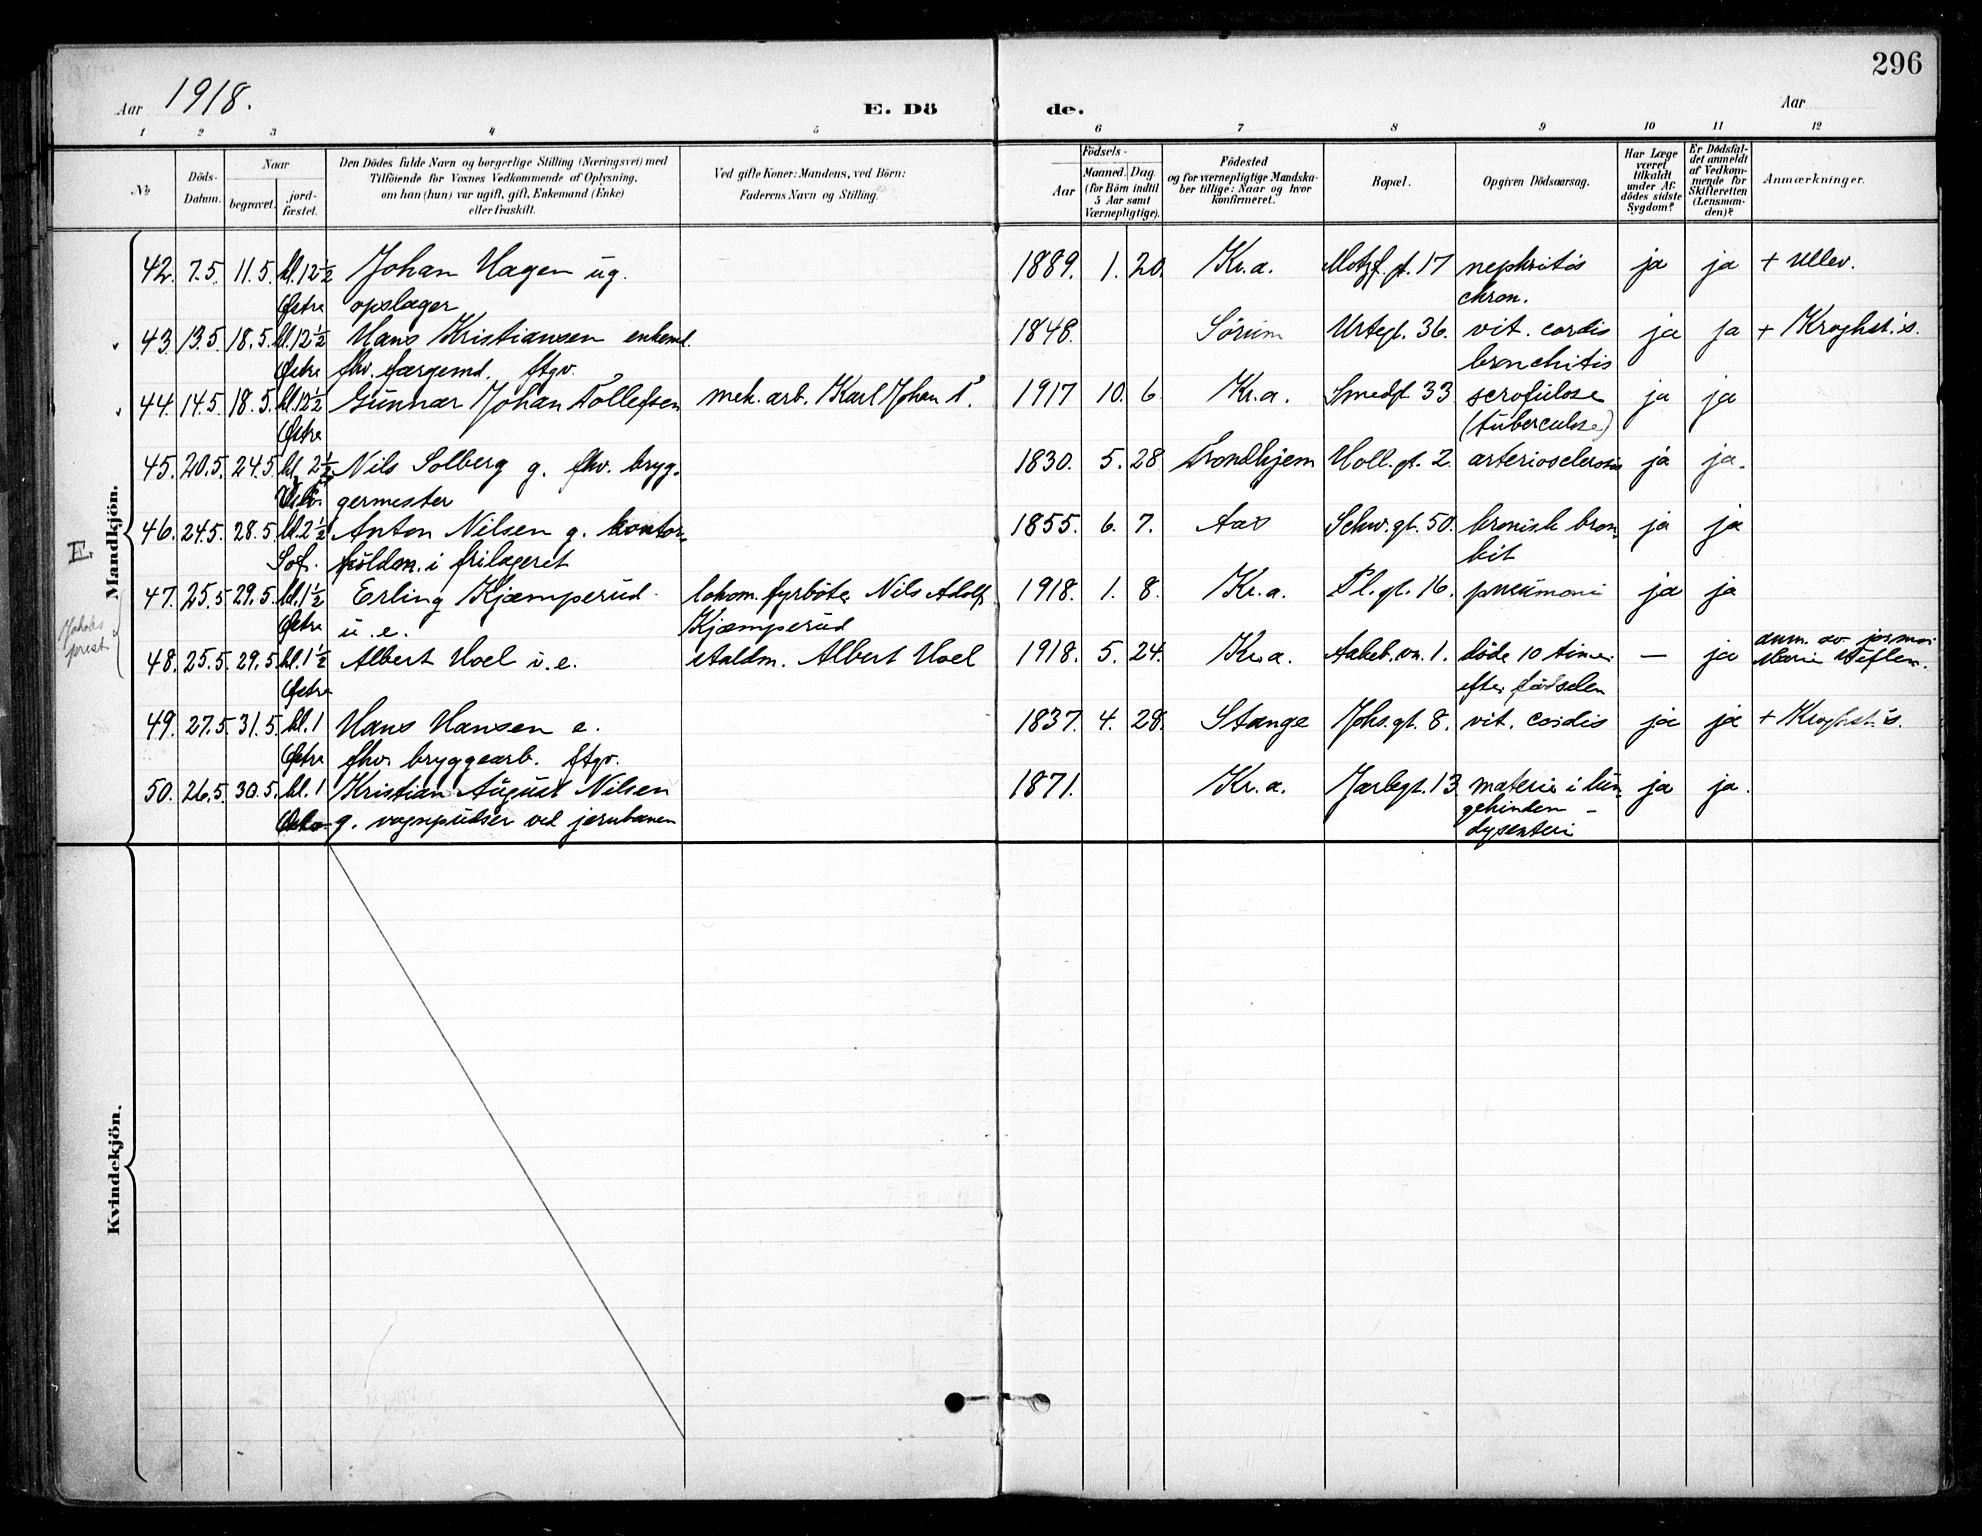 296
Aar 1918. E. Dö de. Aar
1 2 3 4 5 6 7 8 9 10 11 12
No
Döds-Datum.
Naar
begravet.
jord-fæstet.
Den Dödes fulde Navn og borgerlige Stilling (Næringsvei) med
Tilföiende for Voxnes Vedkommende af Oplysning,
om han (hun) var ugift, gift, Enkemand (Enke)
eller fraskilt.
Ved gifte Koner: Mandens, ved Börn:
Faderens Navn og Stilling.
Födsels-
Aar
Maaned. Dag.
(for Börn indtil
5 Aar samt
Værnepligtige).
Födested
og for værnepligtige Mandska-
ber tillige: Naar og hvor
konfirmeret.
Bopæl.
Opgiven Dödsaarsag.
Har Læge
været
tilkaldt
under Af-
dödes sidste
Sygdom?
Er Dödsfal-
det anmeldt
af Vedkom-
mende for
Skifteretten
(Lensman-
den)?
Anmærkninger.
Mandkjön.
E.
42. 7.5. 11.5. kl. 12½ Johan Hagen ug. 1889. 1. 20. Kr.a. Motzf. gt. 17 nephritis ja ja + Ullev.
Östre opslager chron.
43. 13.5. 18.5. kl. 12½ Hans Kristiansen enkemd. 1848. Sörum Urtegt. 36. vit. cordis ja ja + Kroghst. s.
Östre fhv. færgemd. ftgv. bronchitis
44. 14.5. 18.5. kl. 12½ Gunnar Johan Tollefsen mek. arb. Karl Johan T. 1917 10. 6. Kr.a. Smedgt. 33 scrofulose ja ja
Östre (tuberculose)
45. 20.5. 24.5 kl. 2½ Nils Solberg g. fhv. bryg- 1830. 5. 28 Trondhjem Holl. gt. 2. arteriosclerosis ja ja.
germester
46. 24.5. 28.5. kl. 2½ Anton Nilsen g. kontor- 1855. 6. 7. Aas Schw. gt. 50. kronisk bron- ja ja
Sof. fuldm. i frilageret kit
47. 25.5 29.5. kl. 1½ Erling Kjæmperud lokom. fyrböter Nils Adolf 1918. 1. 8. Kr.a. Pl. gt. 16. pneumoni ja ja
Östre u. e. Kjæmperud
Jakobs
prest
48. 25.5. 29.5. kl. 1½ Albert Hoel u. e. staldm. Albert Hoel 1918. 5. 24. Kr.a. Aakeb. vn. 1. döde 10 timer — ja anm. av jormor
Marie
Östre efter födselen
49. 27.5. 31.5. kl. 1 Hans Hansen e. 1837. 4. 28. Stange Johs. gt. 8. vit. cordis ja ja + Kroghst. s.
Östre fhv. bryggearb. ftgv.
50. 26.5. 30.5. kl. 1 Kristian August Nilsen 1871. Kr.a. Jarlegt. 13 materie i lun- ja ja.
Östre g. vognpudser ved jernbanen gehinden -
dysenteri
Kvindekjön.